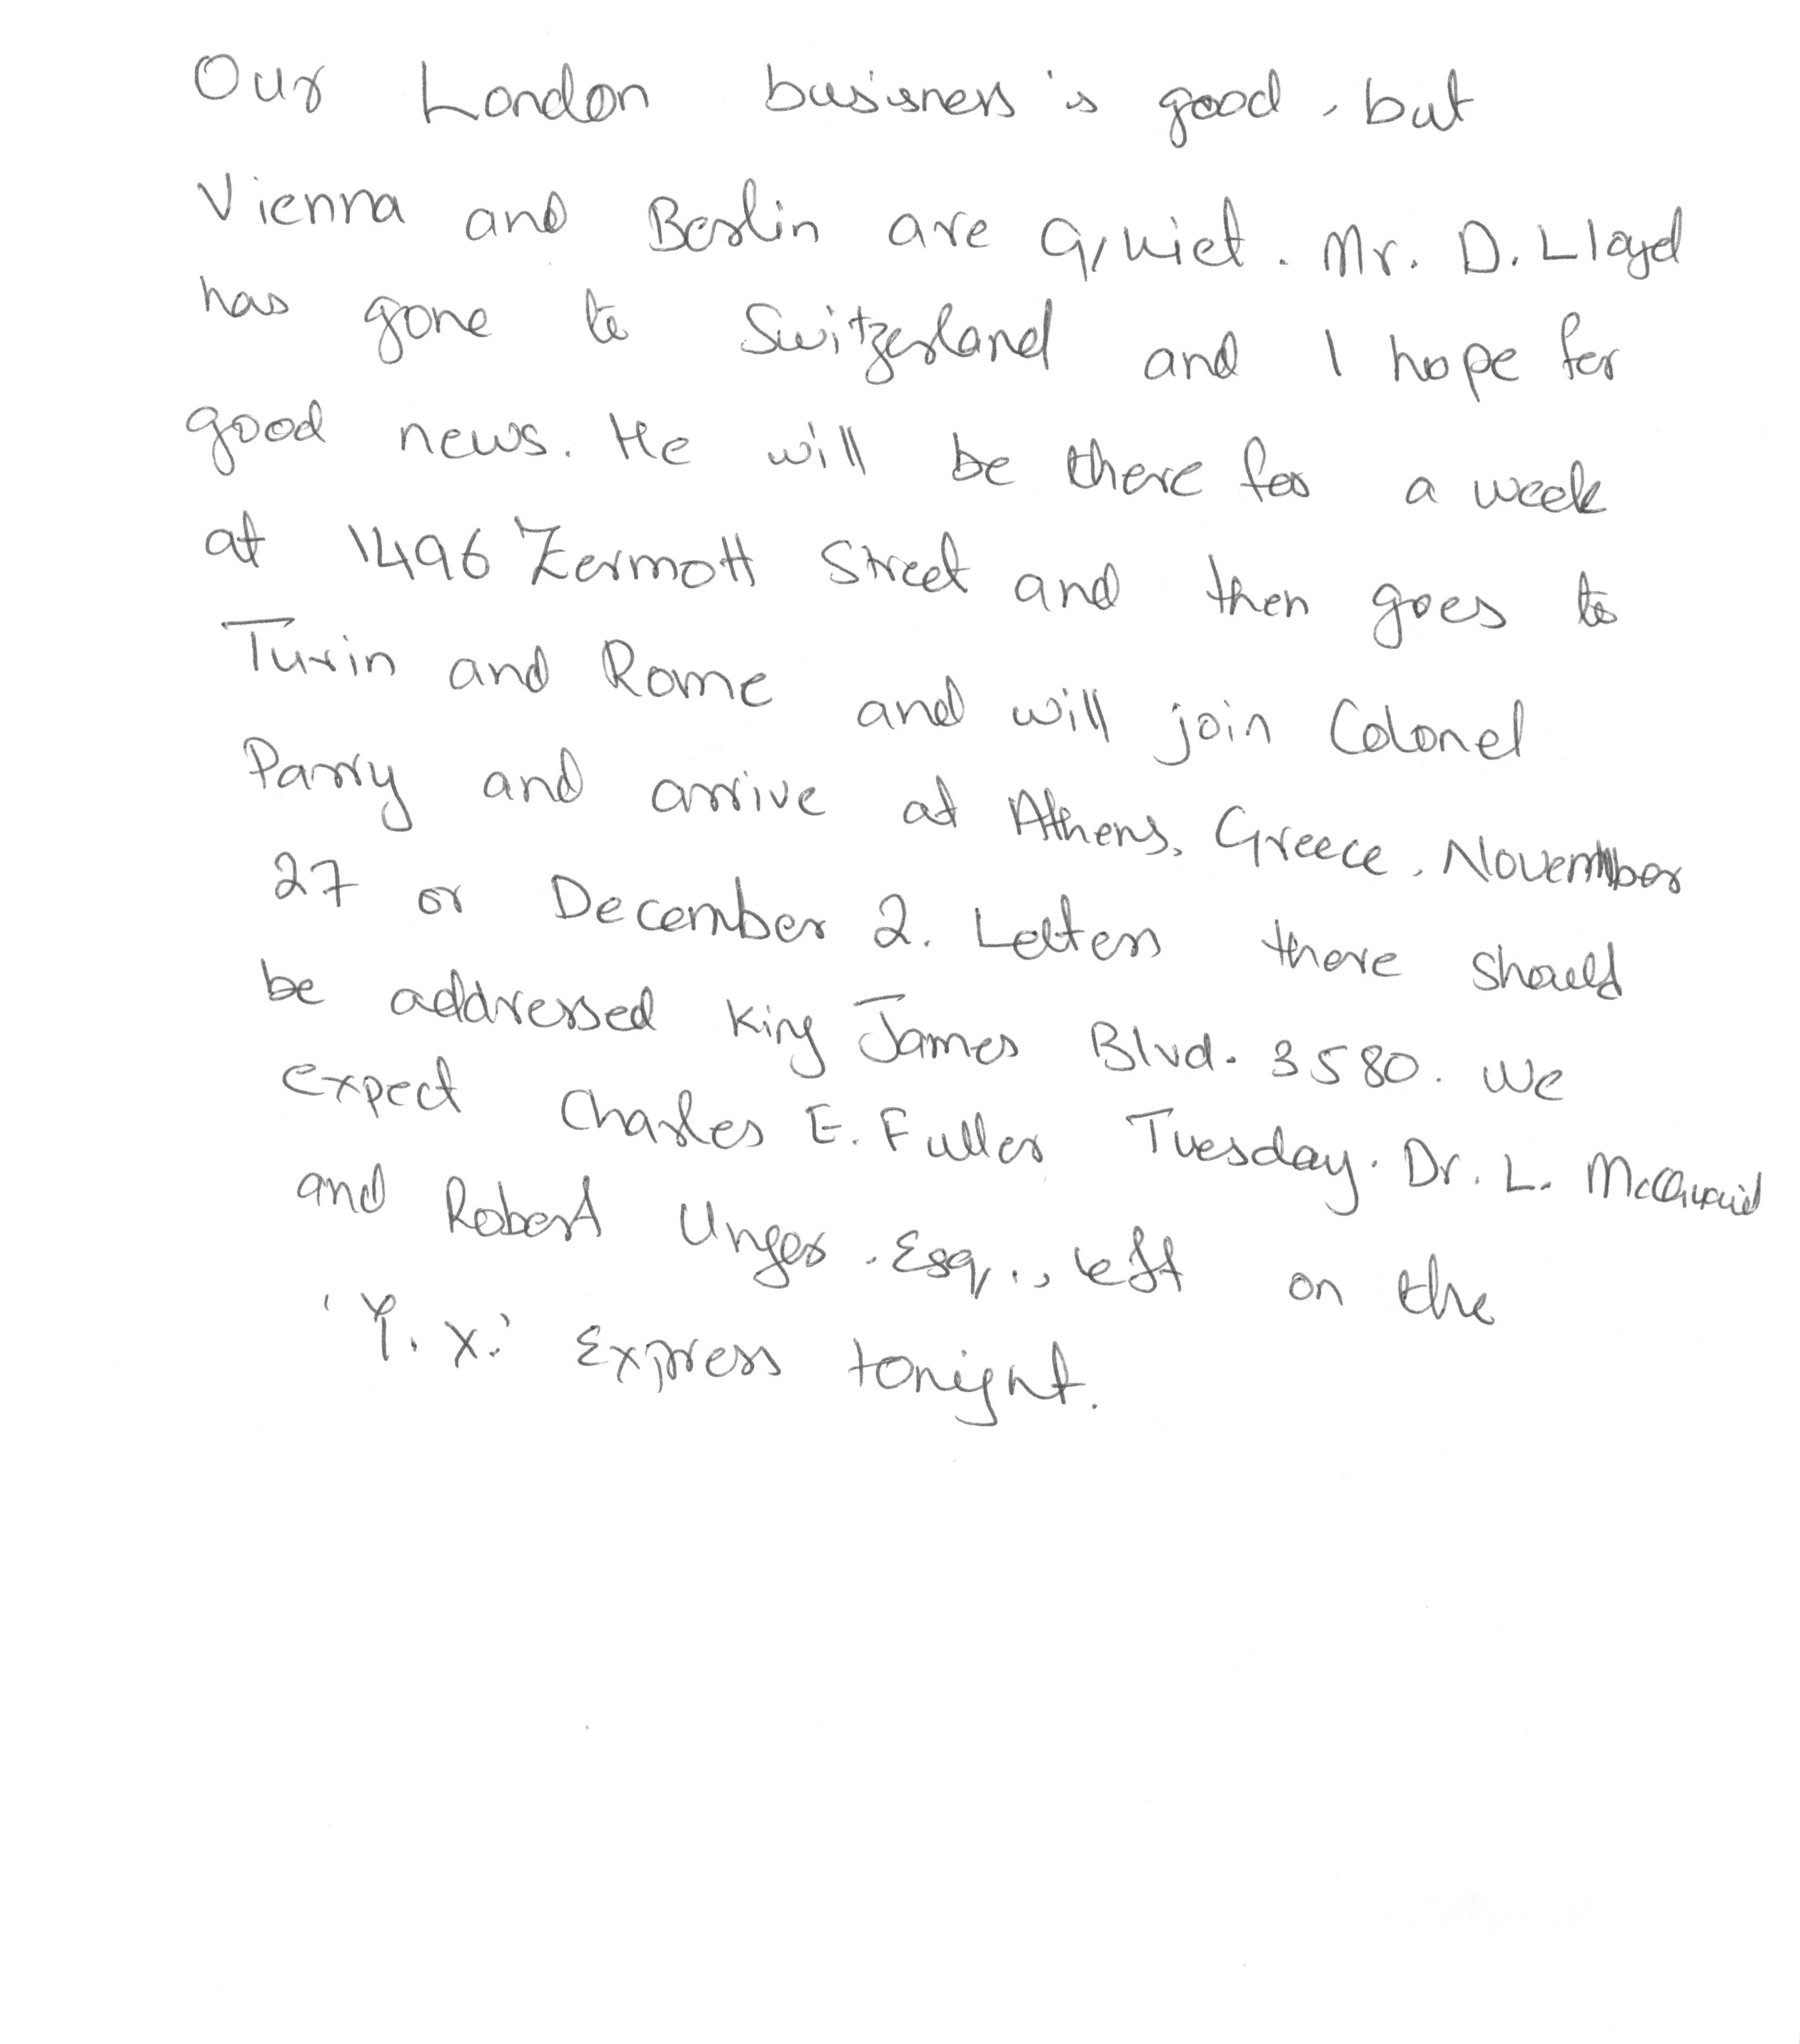 Our London busisness is good, but
Vienna and Berlin are quiet. Mr. D. Lloyd
has gone to Switzerland and I hope for
good news. He will be there for a week
at 1496 Zermott Street and then goes to
Turin and Rome and will join Colonel
Parry and arrive at Athens, Greece, November
27 or December 2. Letters there should
be addressed King James Blvd. 3580. We
expect Charles E. Fuller Tuesday. Dr. L. McQuaid
and Robert Unger, Esq., left on the
'Y.X.' Express tonight.